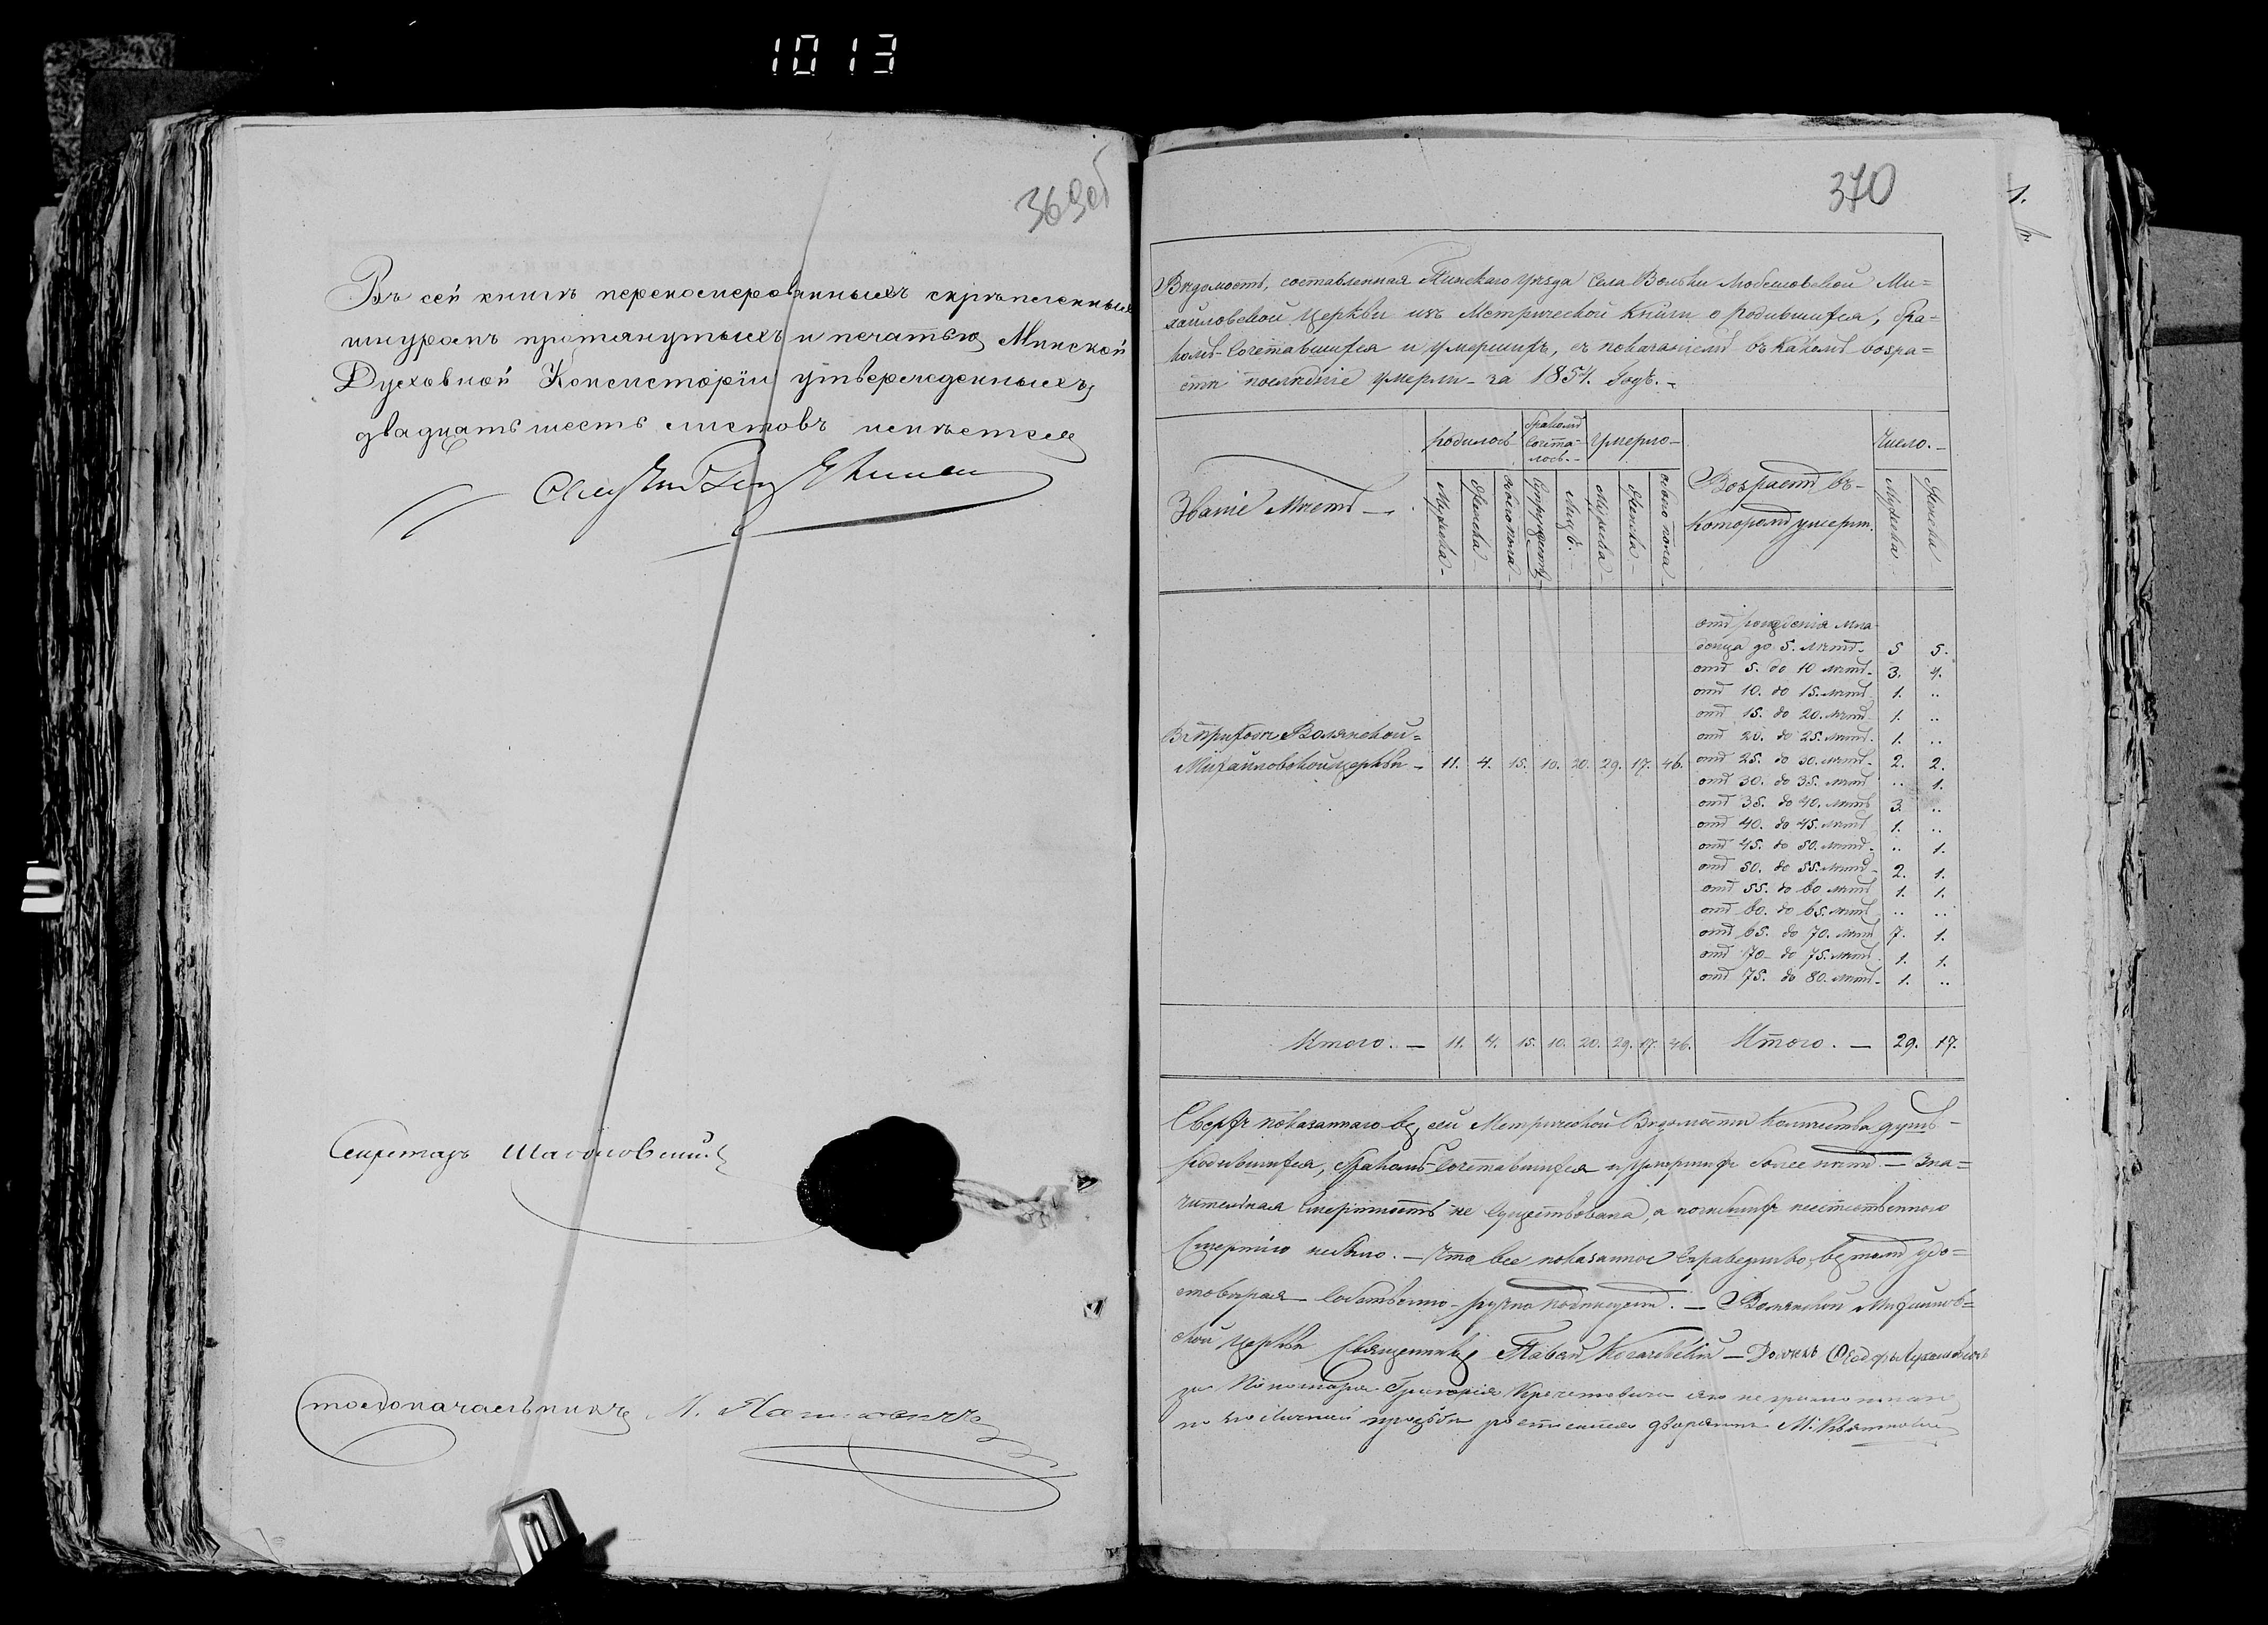 1013
369об
Въ сей книгѣ переномерованныхъ скрѣпленныхъ
шнуромъ протянутыхъ и печатью Минской
Духовной Консисторіи утвержденныхъ
двадцать шесть листовъ имѣется
Секретарь
Столоначальникъ
370
1.
Вѣдомость, составленная Пинскаго Уѣзда Села Вольки Любешовской Ми=
хайловской Церкви изъ Метрической Книги о родившихся, бра=
комъ-сочетавшихся и умершихъ, съ показаніемъ въ какомъ возра=
стѣ послѣдніе умерли - за 1854. Годъ. -
Званіе Мѣстъ —
родилось
бракомъ сочета=лось. -
Умерло -
Возрастъ въ - которомъ умерли.
Число. -
Мужска -
Женска -
обоего пола -
Супружествъ -
Лицъ. -
Мужска -
Женска -
обоего пола -
Мужска
Женска
отъ рожденія мла-
денца до 5. лѣтъ - 5 5.
отъ 5. до 10 лѣтъ - 3. 4.
отъ 10. до 15. лѣтъ 1. ..
отъ 15. до 20. лѣтъ 1. ..
отъ 20. до 25. лѣтъ - 1. ..
Въ приходѣ Волянской=
Михайловской церкви - 11. 4. 15. 10. 20. 29. 17. 46. отъ 25. до 30. лѣтъ - 2. 2.
отъ 30. до 35. лѣтъ .. 1.
отъ 35. до 40. лѣтъ 3. ..
отъ 40. до 45. лѣтъ 1. ..
отъ 45. до 50. лѣтъ - .. 1.
отъ 50. до 55. лѣтъ - 2. 1.
отъ 55. до 60 лѣтъ 1. 1.
отъ 60. до 65. лѣтъ .. ..
отъ 65. до 70. лѣтъ 7. 1.
отъ 70 - до 75. лѣтъ 1. 1.
отъ 75. до 80. лѣтъ - 1. ..
Итого. — 11. 4. 15. 10. 20. 29. 17. 46. Итого. — 29. 17.
Сверхъ показаннаго въ сей Метрической Вѣдомости Количества душъ -
родившихся, бракомъ-сочетавшихся и умершихъ более нѣтъ. — Зна=
чительная смертность не существовала, а погибшихъ неестественною
смертію небыло. — Что все показанное справедливо, въ томъ удо=
стовѣряя собственно-ручно подписуемъ. — Волянской Михайлов=
ской церкви Священникъ Павелъ — Дьячекъ Ѳеодоръ
за Пономаря Григорія его неграмотнаго
по его личной прозьбѣ росписался дворянинъ М.